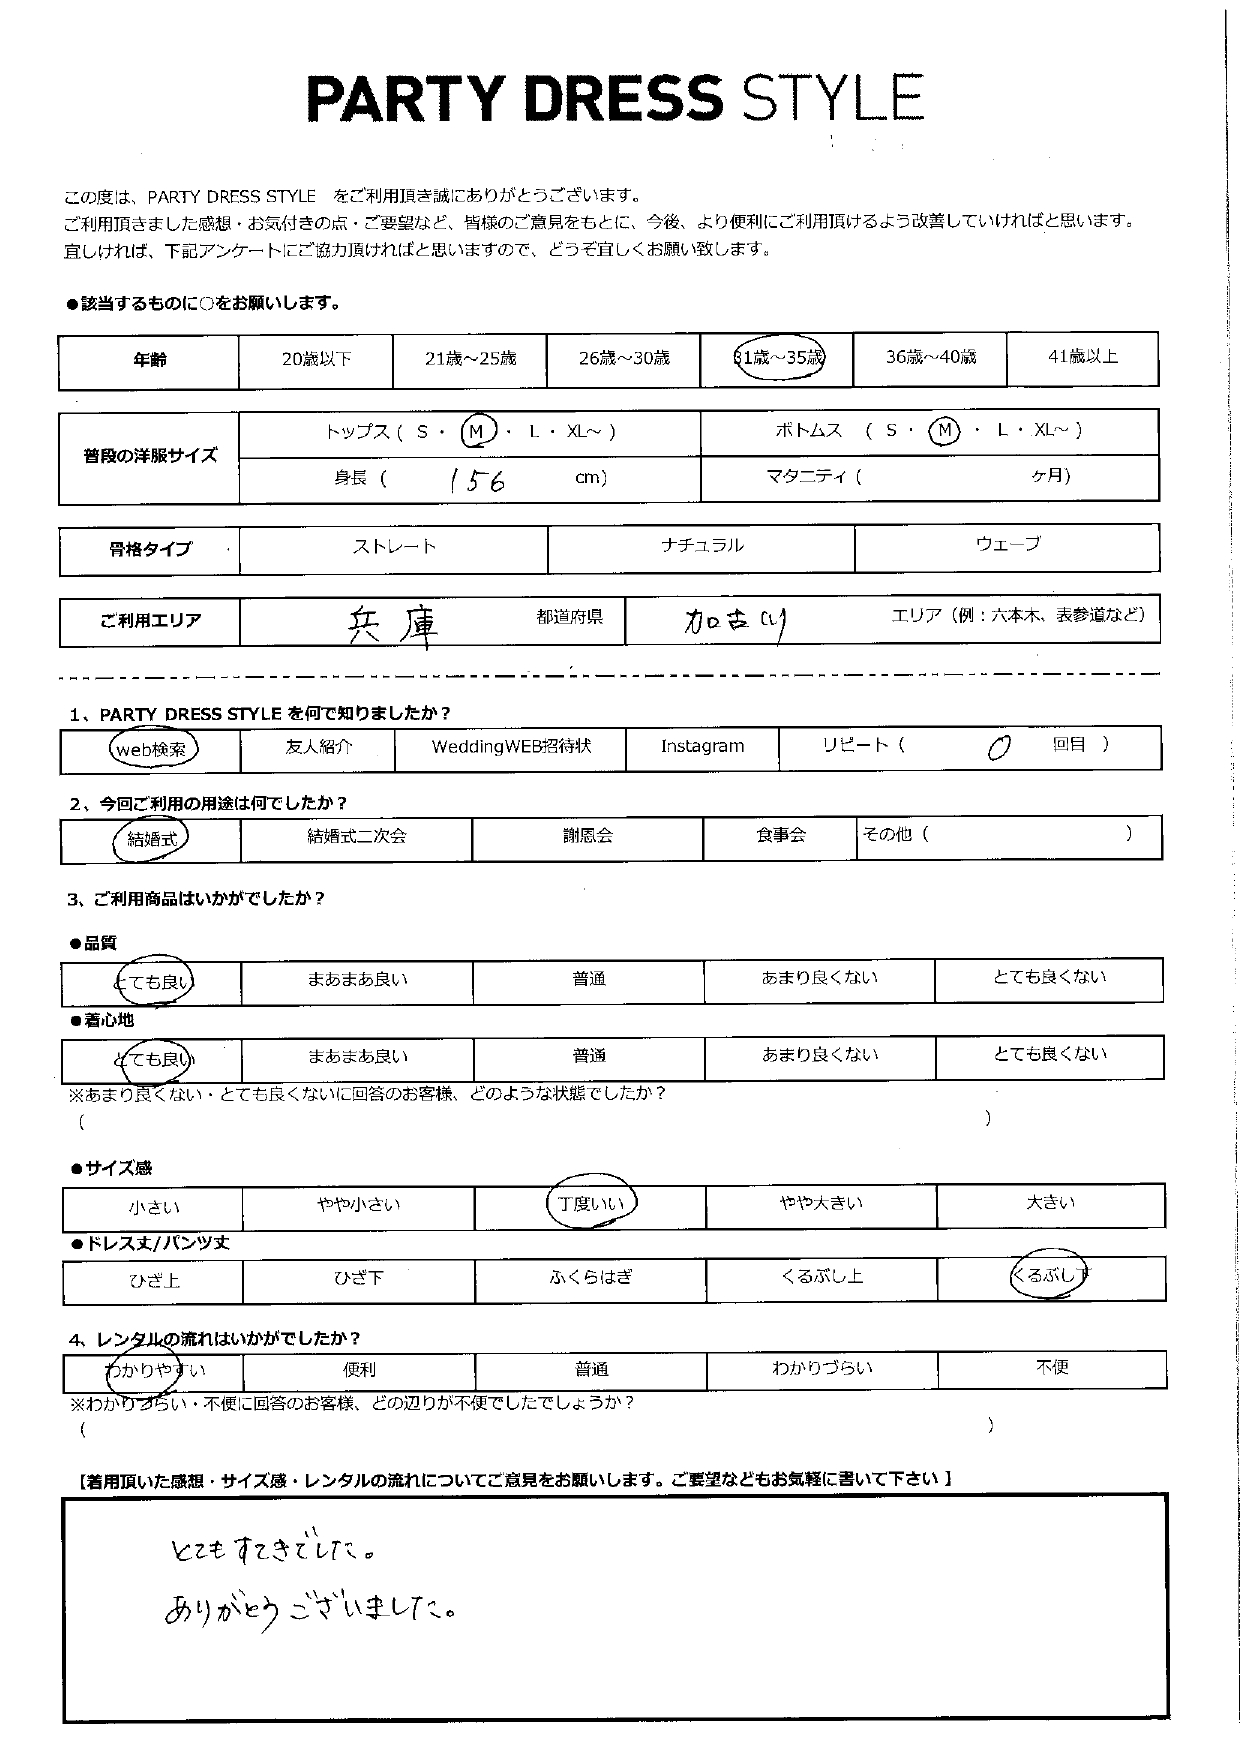 PARTY DRESS STYLE
この度は、PARTY DRESS STYLE　をご利用頂き誠にありがとうございます。
ご利用頂きました感想・お気付きの点・ご要望など、皆様のご意見をもとに、今後、より便利にご利用頂けるよう改善していければと思います。
宜しければ、下記アンケートにご協力頂ければと思いますので、どうぞ宜しくお願い致します。
●該当するものに○をお願いします。
年齢 20歳以下 21歳～25歳 26歳～30歳 31歳～35歳 36歳～40歳 41歳以上
普段の洋服サイズ トップス ( S ・ M ・ L ・ XL～ ) ボトムス ( S ・ M ・ L ・ XL～ )
身長 ( 156 cm) マタニティ ( ヶ月)
骨格タイプ ストレート ナチュラル ウェーブ
ご利用エリア 兵庫 都道府県 加古川 エリア（例：六本木、表参道など）
1、PARTY DRESS STYLE を何で知りましたか？
web検索 友人紹介 WeddingWEB招待状 Instagram リピート ( 0 回目 )
2、今回ご利用の用途は何でしたか？
結婚式 結婚式二次会 謝恩会 食事会 その他 ( )
3、ご利用商品はいかがでしたか？
●品質
とても良い まあまあ良い 普通 あまり良くない とても良くない
●着心地
とても良い まあまあ良い 普通 あまり良くない とても良くない
※あまり良くない・とても良くないに回答のお客様、どのような状態でしたか？
( )
●サイズ感
小さい やや小さい 丁度いい やや大きい 大きい
●ドレス丈/パンツ丈
ひざ上 ひざ下 ふくらはぎ くるぶし上 くるぶし下
4、レンタルの流れはいかがでしたか？
わかりやすい 便利 普通 わかりづらい 不便
※わかりづらい・不便に回答のお客様、どの辺りが不便でしたでしょうか？
( )
【着用頂いた感想・サイズ感・レンタルの流れについてご意見をお願いします。ご要望などもお気軽に書いて下さい 】
とてもすてきでした。
ありがとうございました。